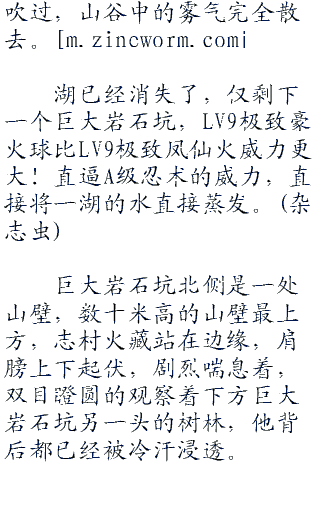 吹过，山谷中的雾气完全散
去。[m.zincworm.com]
湖已经消失了，仅剩下
一个巨大岩石坑，LV9极致豪
火球比LV9极致凤仙火威力更
大！直逼A级忍术的威力，直
接将一湖的水直接蒸发。(杂
志虫)
巨大岩石坑北侧是一处
山壁，数十米高的山壁最上
方，志村火藏站在边缘，肩
膀上下起伏，剧烈喘息着，
双目瞪圆的观察着下方巨大
岩石坑另一头的树林，他背
后都已经被冷汗浸透。